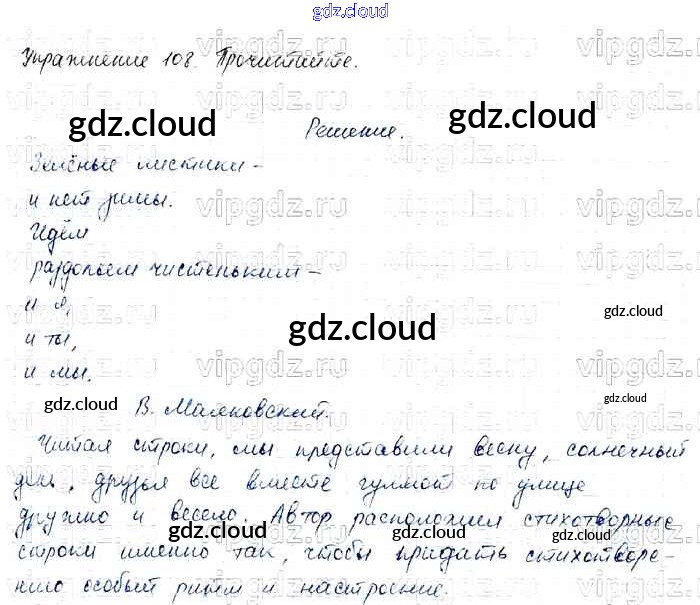 gdz.cloud
Упражнение 108. Прочитайте.
vipgdz.ru
gdz.cloud
gdz.cloud
Решение.
Зелёные листики –
и нет зимы.
vipgdz.ru vipgdz.ru vipgdz.ru
Идём
раздольем чистеньким –
и я,
gdz.cloud
и ты,
gdz.cloud
и мы.
vipgdz.ru vipgdz.ru
gdz.cloud
gdz.cloud
В. Маяковский.
Читая строки, мы представили весну, солнечный
день, друзья все вместе гуляют по улице
дружно и весело. Автор расположил стихотворные
строки именно так, чтобы придать стихотворе-
нию особый ритм и настроение.